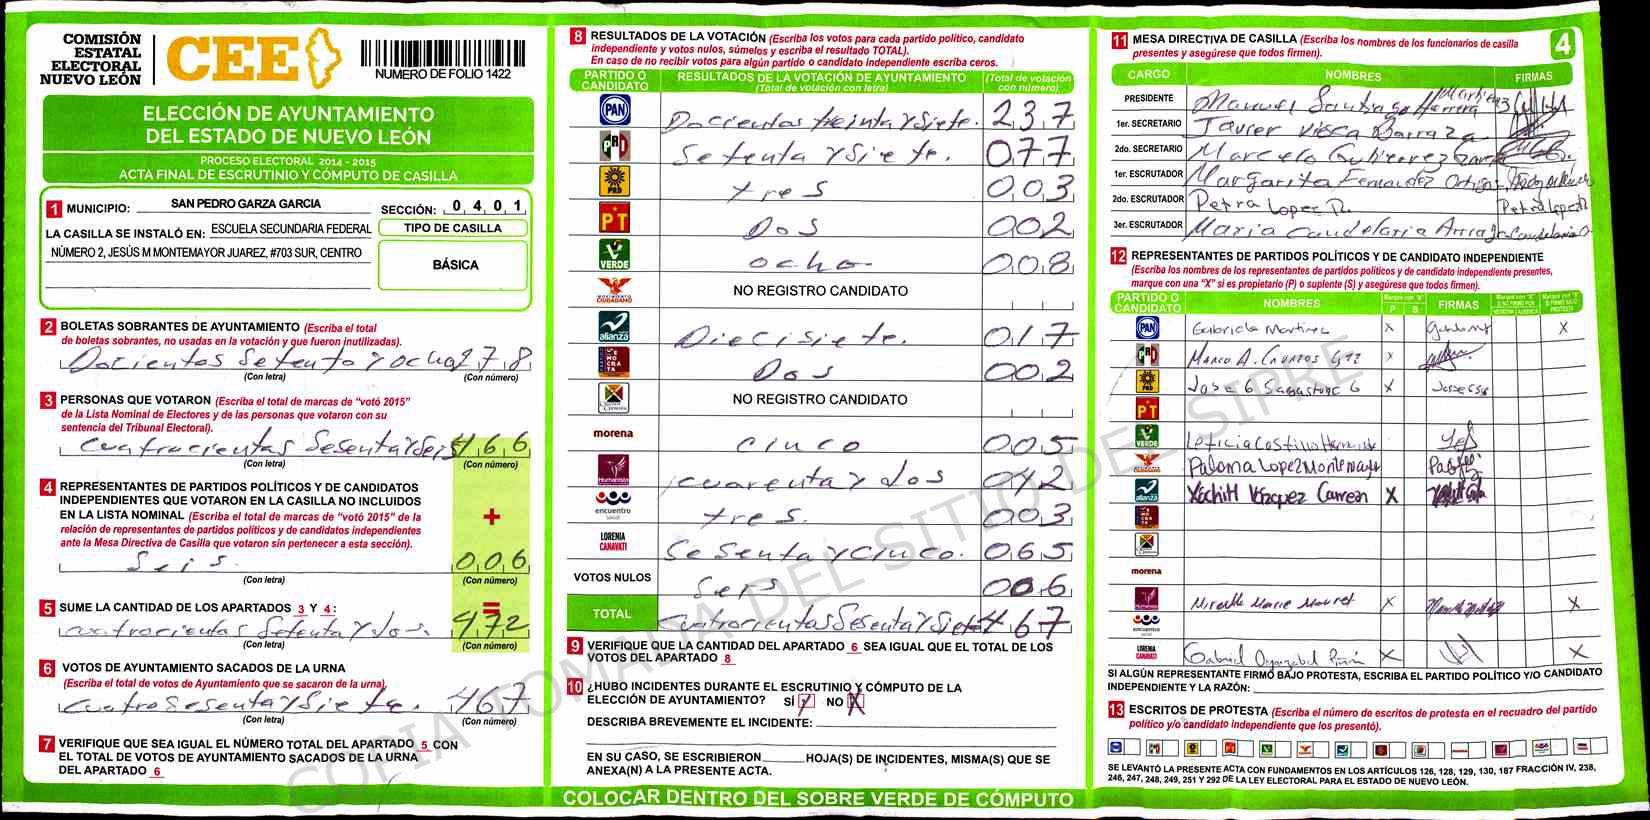 COMISIÓN
ESTATAL
ELECTORAL
NUEVO LEÓN
CEE
NUMERO DE FOLIO 1422
ELECCIÓN DE AYUNTAMIENTO
DEL ESTADO DE NUEVO LEÓN
PROCESO ELECTORAL 2014 - 2015
ACTA FINAL DE ESCRUTINIO Y CÓMPUTO DE CASILLA
1 MUNICIPIO: SAN PEDRO GARZA GARCIA SECCIÓN: 0 4 0 1
LA CASILLA SE INSTALÓ EN: ESCUELA SECUNDARIA FEDERAL
NÚMERO 2, JESÚS M MONTEMAYOR JUAREZ, #703 SUR, CENTRO
TIPO DE CASILLA
BÁSICA
2 BOLETAS SOBRANTES DE AYUNTAMIENTO (Escriba el total
de boletas sobrantes, no usadas en la votación y que fueron inutilizadas).
Docientos Setenta y ocho 278
(Con letra) (Con número)
3 PERSONAS QUE VOTARON (Escriba el total de marcas de “votó 2015”
de la Lista Nominal de Electores y de las personas que votaron con su
sentencia del Tribunal Electoral).
Cuatrocientas Sesenta y Seis 466
(Con letra) (Con número)
4 REPRESENTANTES DE PARTIDOS POLÍTICOS Y DE CANDIDATOS
INDEPENDIENTES QUE VOTARON EN LA CASILLA NO INCLUIDOS
EN LA LISTA NOMINAL (Escriba el total de marcas de “votó 2015” de la
relación de representantes de partidos políticos y de candidatos independientes
ante la Mesa Directiva de Casilla que votaron sin pertenecer a esta sección).
+
Seis. 006
(Con letra) (Con número)
=
5 SUME LA CANTIDAD DE LOS APARTADOS 3 Y 4:
cuatrocientas Setenta y dos. 472
(Con letra) (Con número)
6 VOTOS DE AYUNTAMIENTO SACADOS DE LA URNA
(Escriba el total de votos de Ayuntamiento que se sacaron de la urna).
Cuatro Sesenta y Siete. 467
(Con letra) (Con número)
7 VERIFIQUE QUE SEA IGUAL EL NÚMERO TOTAL DEL APARTADO 5 CON
EL TOTAL DE VOTOS DE AYUNTAMIENTO SACADOS DE LA URNA
DEL APARTADO 6
8 RESULTADOS DE LA VOTACIÓN (Escriba los votos para cada partido político, candidato
independiente y votos nulos, súmelos y escriba el resultado TOTAL).
En caso de no recibir votos para algún partido o candidato independiente escriba ceros.
PARTIDO O CANDIDATO RESULTADOS DE LA VOTACIÓN DE AYUNTAMIENTO (Total de votación con letra) (Total de votación con número)
PAN Docientos treinta y Siete. 237
PRI Setenta y Siete. 077
PRD tres 003
PT Dos 002
VERDE ocho 008
MOVIMIENTO CIUDADANO NO REGISTRO CANDIDATO
alianza Diecisiete. 017
DEMOCRATA Dos 002
NO REGISTRO CANDIDATO
morena cinco 005
Humanista cuarenta y dos 042
encuentro social tres. 003
LORENIA CANAVATI Sesenta y cinco. 065
VOTOS NULOS Seis 006
TOTAL Cuatrocientas Sesenta y Siete 467
9 VERIFIQUE QUE LA CANTIDAD DEL APARTADO 6 SEA IGUAL QUE EL TOTAL DE LOS
VOTOS DEL APARTADO 8
10 ¿HUBO INCIDENTES DURANTE EL ESCRUTINIO Y CÓMPUTO DE LA
ELECCIÓN DE AYUNTAMIENTO? SÍ NO X
DESCRIBA BREVEMENTE EL INCIDENTE:
EN SU CASO, SE ESCRIBIERON HOJA(S) DE INCIDENTES, MISMA(S) QUE SE
ANEXA(N) A LA PRESENTE ACTA.
COLOCAR DENTRO DEL SOBRE VERDE DE CÓMPUTO
11 MESA DIRECTIVA DE CASILLA (Escriba los nombres de los funcionarios de casilla
presentes y asegúrese que todos firmen).
4
CARGO NOMBRES FIRMAS
PRESIDENTE Manuel Santiago Herrera Martinez
1er. SECRETARIO Javier Barraza
2do. SECRETARIO Marcelo Gutierrez Garcia
1er. ESCRUTADOR Margarita Fernandez Ortigas
2do. ESCRUTADOR Petra Lopez R. Petra Lopez R
3er. ESCRUTADOR Maria Candelaria
12 REPRESENTANTES DE PARTIDOS POLÍTICOS Y DE CANDIDATO INDEPENDIENTE
(Escriba los nombres de los representantes de partidos políticos y de candidato independiente presentes,
marque con una “X” si es propietario (P) o suplente (S) y asegúrese que todos firmen).
PARTIDO O CANDIDATO NOMBRES Marque con "X" P S FIRMAS Marque con "X" SI NO FIRMÓ POR NEGATIVA AUSENCIA Marque con "X" SI FIRMÓ BAJO PROTESTA
PAN Gabriela Martinez X X
PRI Marco A. X
PRD Jose G X
PT
VERDE Leticia Castillo
Paloma Lopez Montemayor
alianza Xóchitl Vázquez Carreón X
morena
Humanista Mireille Marie Mouret X X
encuentro social
LORENIA CANAVATI Gabriel X X
SI ALGÚN REPRESENTANTE FIRMÓ BAJO PROTESTA, ESCRIBA EL PARTIDO POLÍTICO Y/O CANDIDATO
INDEPENDIENTE Y LA RAZÓN:
13 ESCRITOS DE PROTESTA (Escriba el número de escritos de protesta en el recuadro del partido
político y/o candidato independiente que los presentó).
SE LEVANTÓ LA PRESENTE ACTA CON FUNDAMENTOS EN LOS ARTÍCULOS 126, 128, 129, 130, 187 FRACCIÓN IV, 238,
246, 247, 248, 249, 251 Y 292 DE LA LEY ELECTORAL PARA EL ESTADO DE NUEVO LEÓN.
COPIA TOMADA DEL SITIO DEL SIPRE